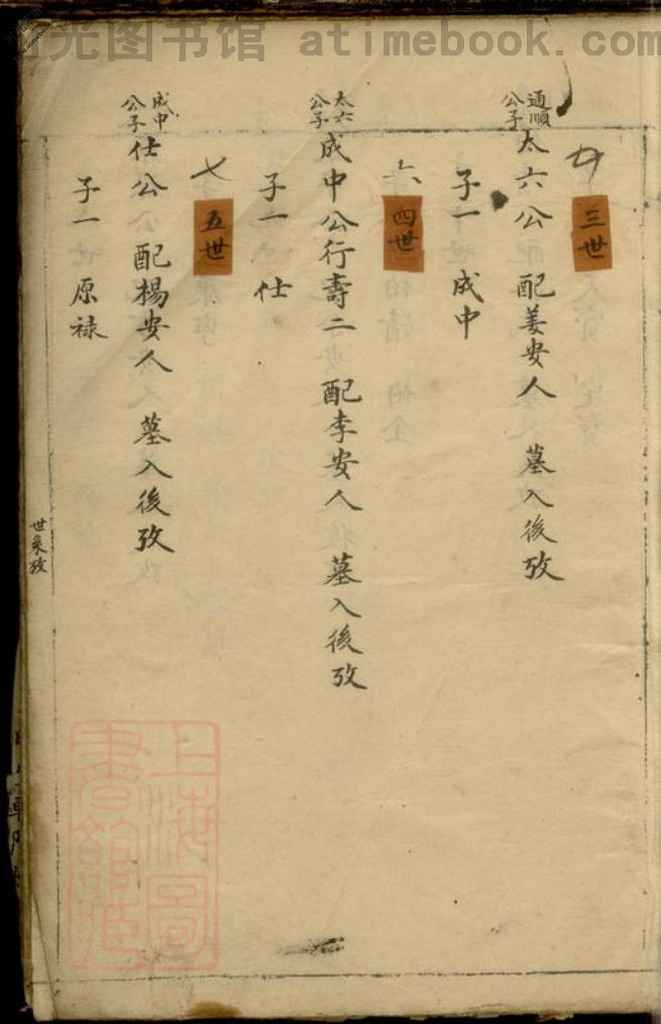 时光图书馆 atimebook.com
三世
通順公子
太六公 配姜安人 墓入後攷
子一 成中
六
四世
太六公子
成中公行壽二 配李安人 墓入後攷
子一 仕
七
五世
成中公子
仕公 配楊安人 墓入後攷
子一 原禄
世系攷
上海圖書館藏